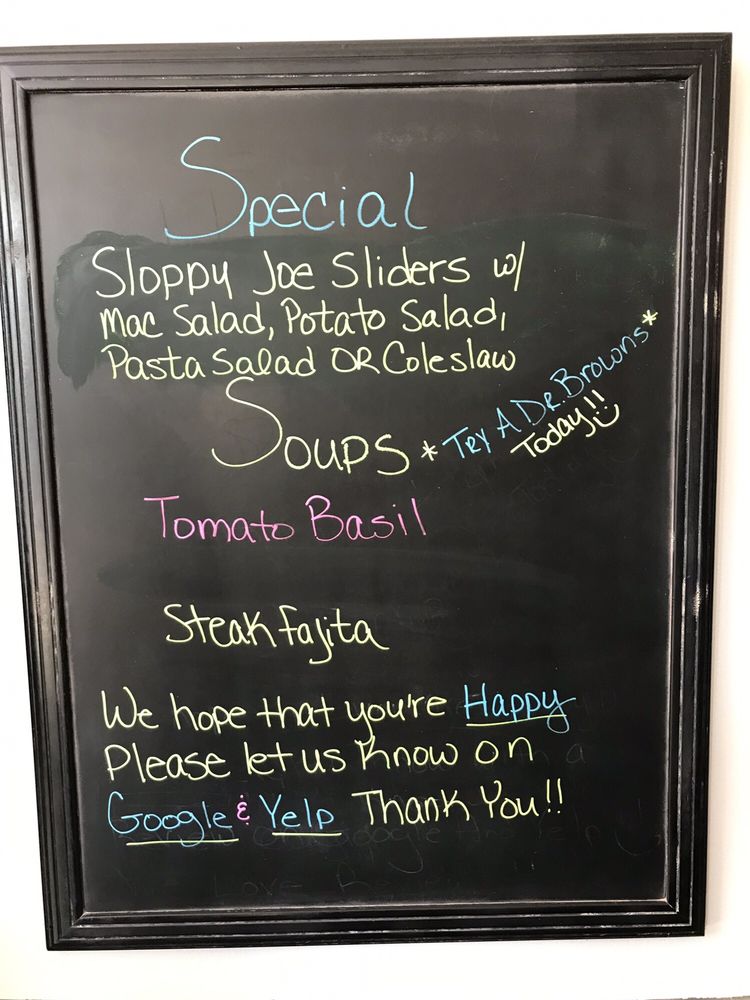 Special
Sloppy Joe Sliders w/
Mac Salad, Potato Salad,
Pasta Salad OR Coleslaw
Soups
*Try A Dr. Browns*
Today!!
Tomato Basil
Steak Fajita
We hope that you're Happy
Please let us know on
Google & Yelp Thank You!!